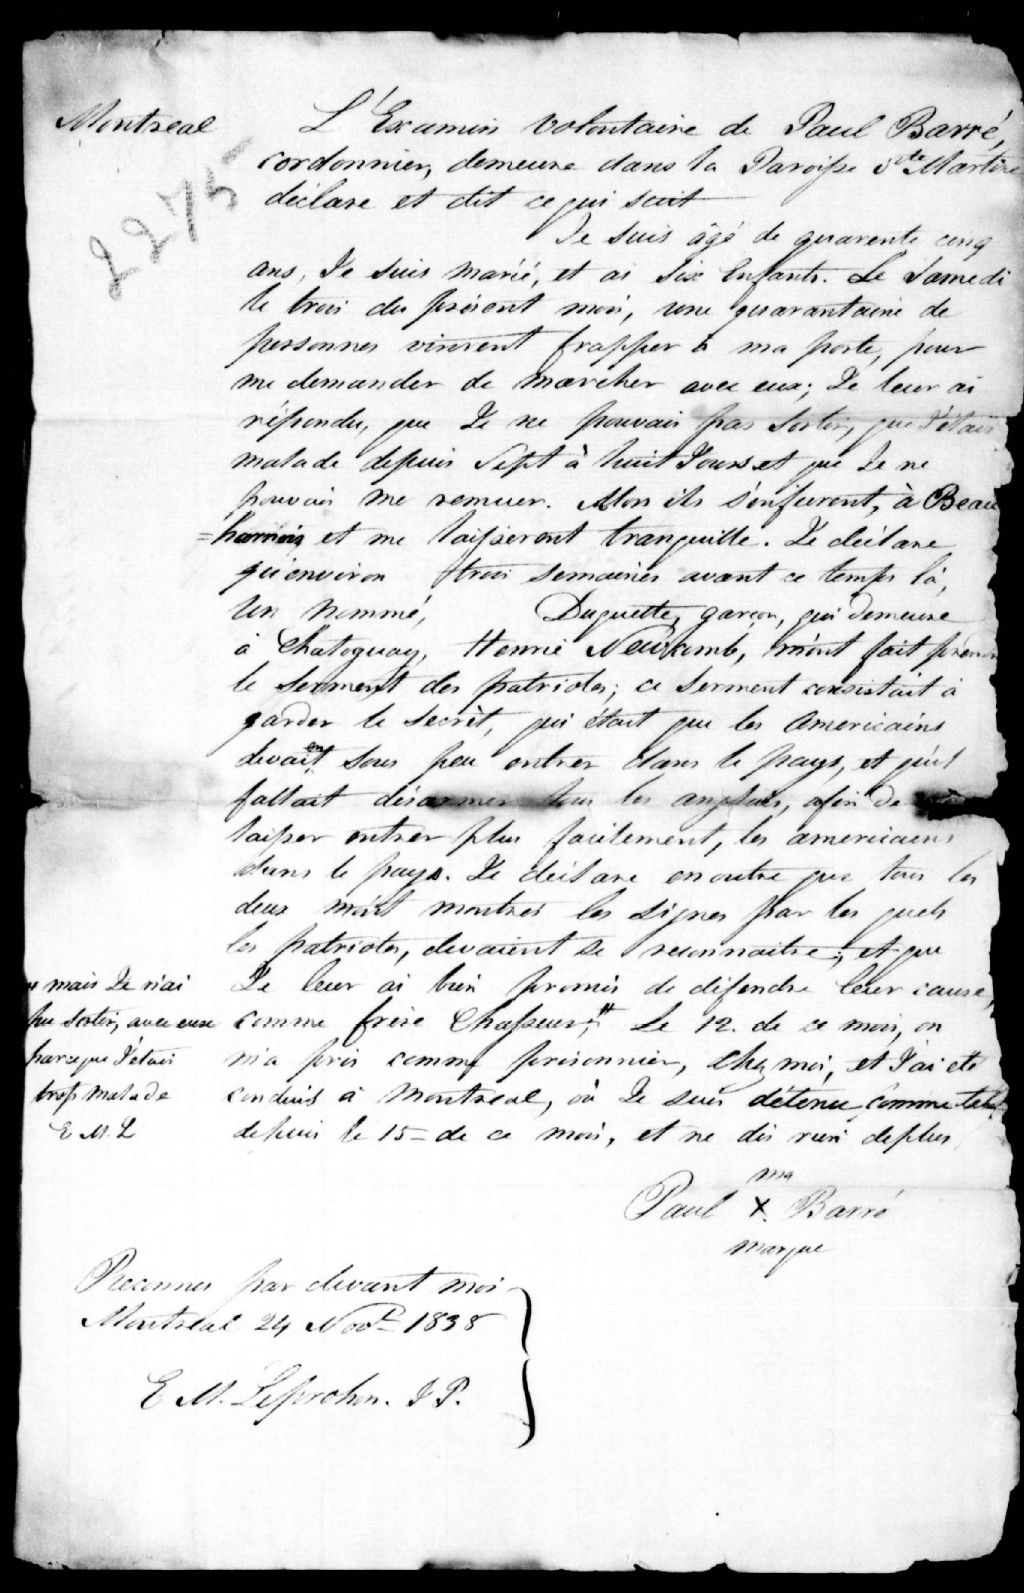 Montreal
2275
L'Examin volontaire de Paul Barré,
cordonnier, demeure dans la Paroisse Ste Martine
déclare et dit ce qui suit
Je suis âgé de quarente cinq
ans, Je suis marié, et ai Six Enfants. Le Samedi
le trois du présent mois, une quarantaine de
personnes vinrent frapper à ma porte, pour
me demander de marcher avec eux; Je leur ai
répondu, que Je ne pouvais pas Sortir, que J'étais
malade depuis Sept à huit Jours et que Je ne
pouvais me remuer. Alors ils s'enfurent, à Beau
=harnois et me laisserent tranquille. Je déclare
qu'environ trois semaines avant ce temps là,
Un nommé, Duquette, garçon, qui demeure
à Chatoguay, Henrie Newcomb, m'ont fait
le serment des patriotes; ce serment consistait à
garder le secrèt, qui était que les Americains
devaient sous peu entrer dans le pays, et qu'il
fallait désarmer tous les anglais, afin de
laisser entrer plus facilement, les americains
dans le pays. Je déclare en outre que tous les
deux m'ont montrés les signes par les quels
les patriotes, devaient se reconnaitre; et que
Je leur ai bien promis de défendre leur cause,
comme frère Chasseur; # Le 12. de ce mois, on
m'a pris comme prisonnier, chez moi, et J'ai eté
conduis à Montreal, où Je suis détenu comme tel
depuis le 15 = de ce mois, et ne dis rien de plus
# mais Je n'ai
pu sortir, avec eux
parceque J'étais
trop malade
E M. L
ma
Paul X. Barré
marque
Reconnu par devant moi
Montreal 24 Novr 1838
E M. Leprohon. J P.